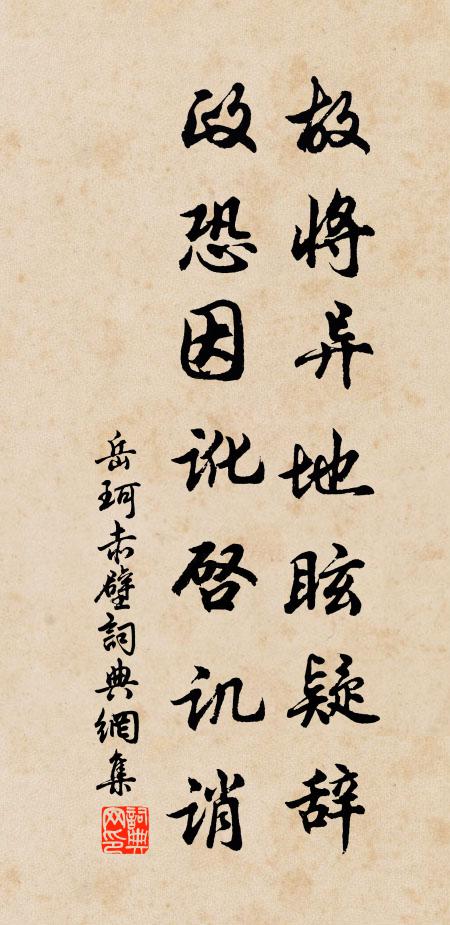 故将异地眩疑辞
政恐因讹启讥诮
岳珂赤壁詞典網集
詞典网印